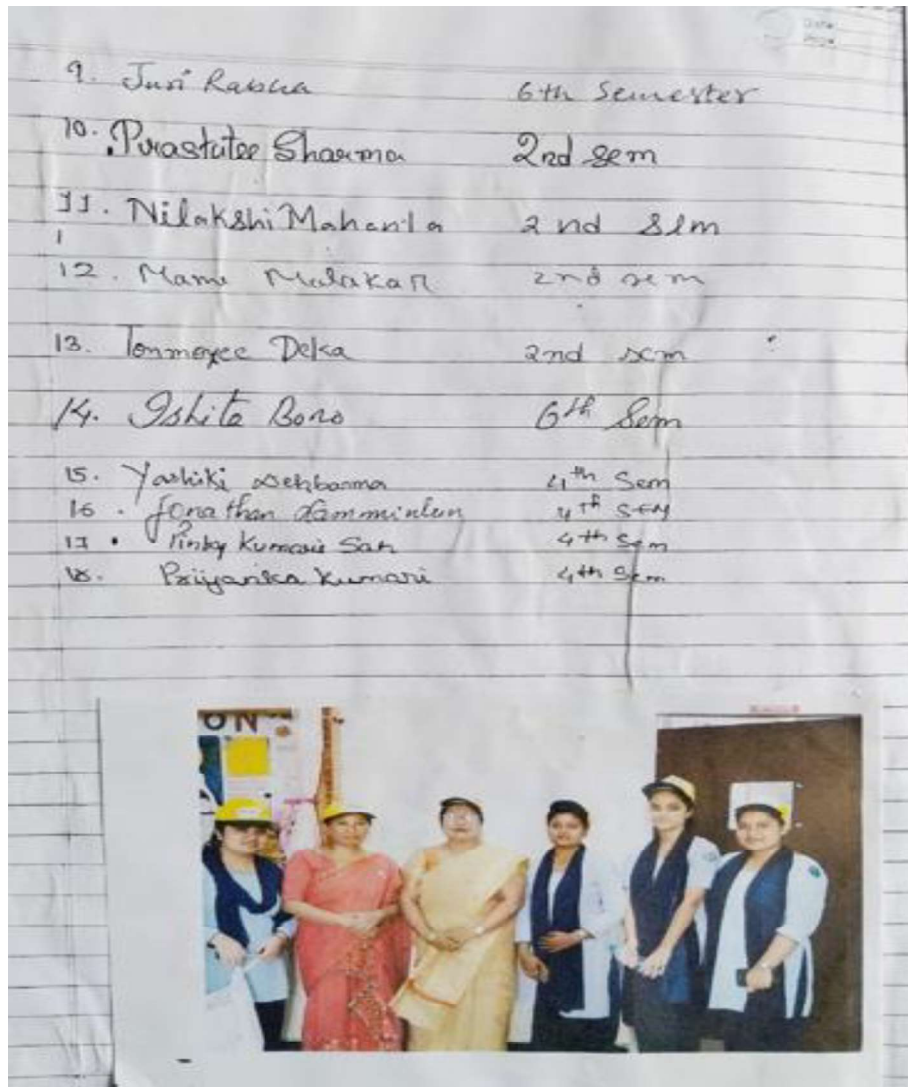 Date
Page
9. Juri Rabha 6th Semester
10. Prastutee Sharma 2nd sem
11. Nilakshi Mahanta 2nd sem
12. Mami Malakar 2nd sem
13. Tonmoyee Deka 2nd sem
14. Ishita Boro 6th Sem
15. Yashiki Debbarma 4th Sem
16. Jonathan 4th SEM
17. Pinky Kumari Sah 4th Sem
18. Priyanka Kumari 4th Sem
ON